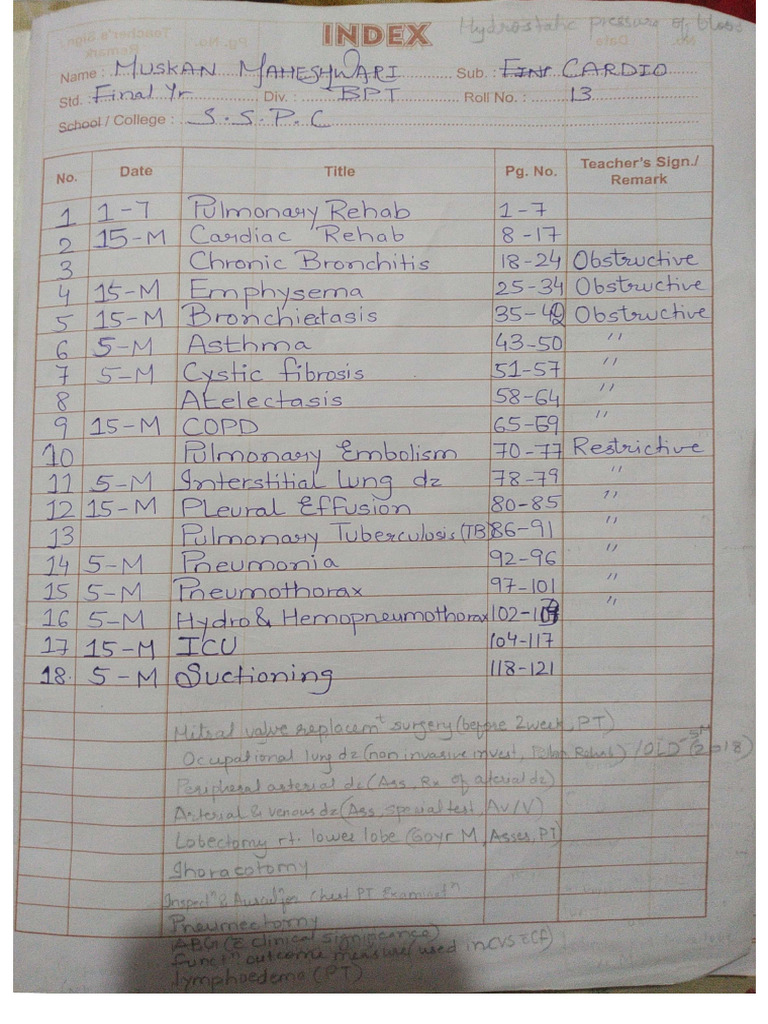 Hydrostatic pressure of blood
INDEX
Name : MUSKAN MAHESHWARI Sub. : CARDIO
Std. Final Yr Div. : BPT Roll No. : 13
School / College : S.S.P.C
No. Date Title Pg. No. Teacher's Sign./ Remark
1 1-7 Pulmonary Rehab 1-7
2 15-M Cardiac Rehab 8-17
3 Chronic Bronchitis 18-24 Obstructive
4 15-M Emphysema 25-34 Obstructive
5 15-M Bronchiectasis 35-42 Obstructive
6 5-M Asthma 43-50 "
7 5-M Cystic fibrosis 51-57 "
8 Atelectasis 58-64 "
9 15-M COPD 65-69 "
10 Pulmonary Embolism 70-77 Restrictive
11 5-M Interstitial lung dz 78-79 "
12 15-M Pleural Effusion 80-85 "
13 Pulmonary Tuberculosis (TB) 86-91 "
14 5-M Pneumonia 92-96 "
15 5-M Pneumothorax 97-101 "
16 5-M Hydro & Hemopneumothorax 102- "
17 15-M ICU 104-117
18. 5-M Suctioning 118-121
Mitral valve replacemt surgery (before 2 week, PT)
Occupational lung dz (non invasive invest, Rehab) / OLD - 5M (2018)
Peripheral arterial dz (Ass, Rx of aterial dz)
Arterial & venous dz (Ass, special test, AV/V)
Lobectomy rt. lower lobe (60yr M, Asses, PT)
Thoracotomy
Inspectn & Auscultn for Chest PT Examinatn
Pneumectomy
ABG (c clinical significance)
Functn outcome measure (used in CVS c CF)
lymphoedema (PT)